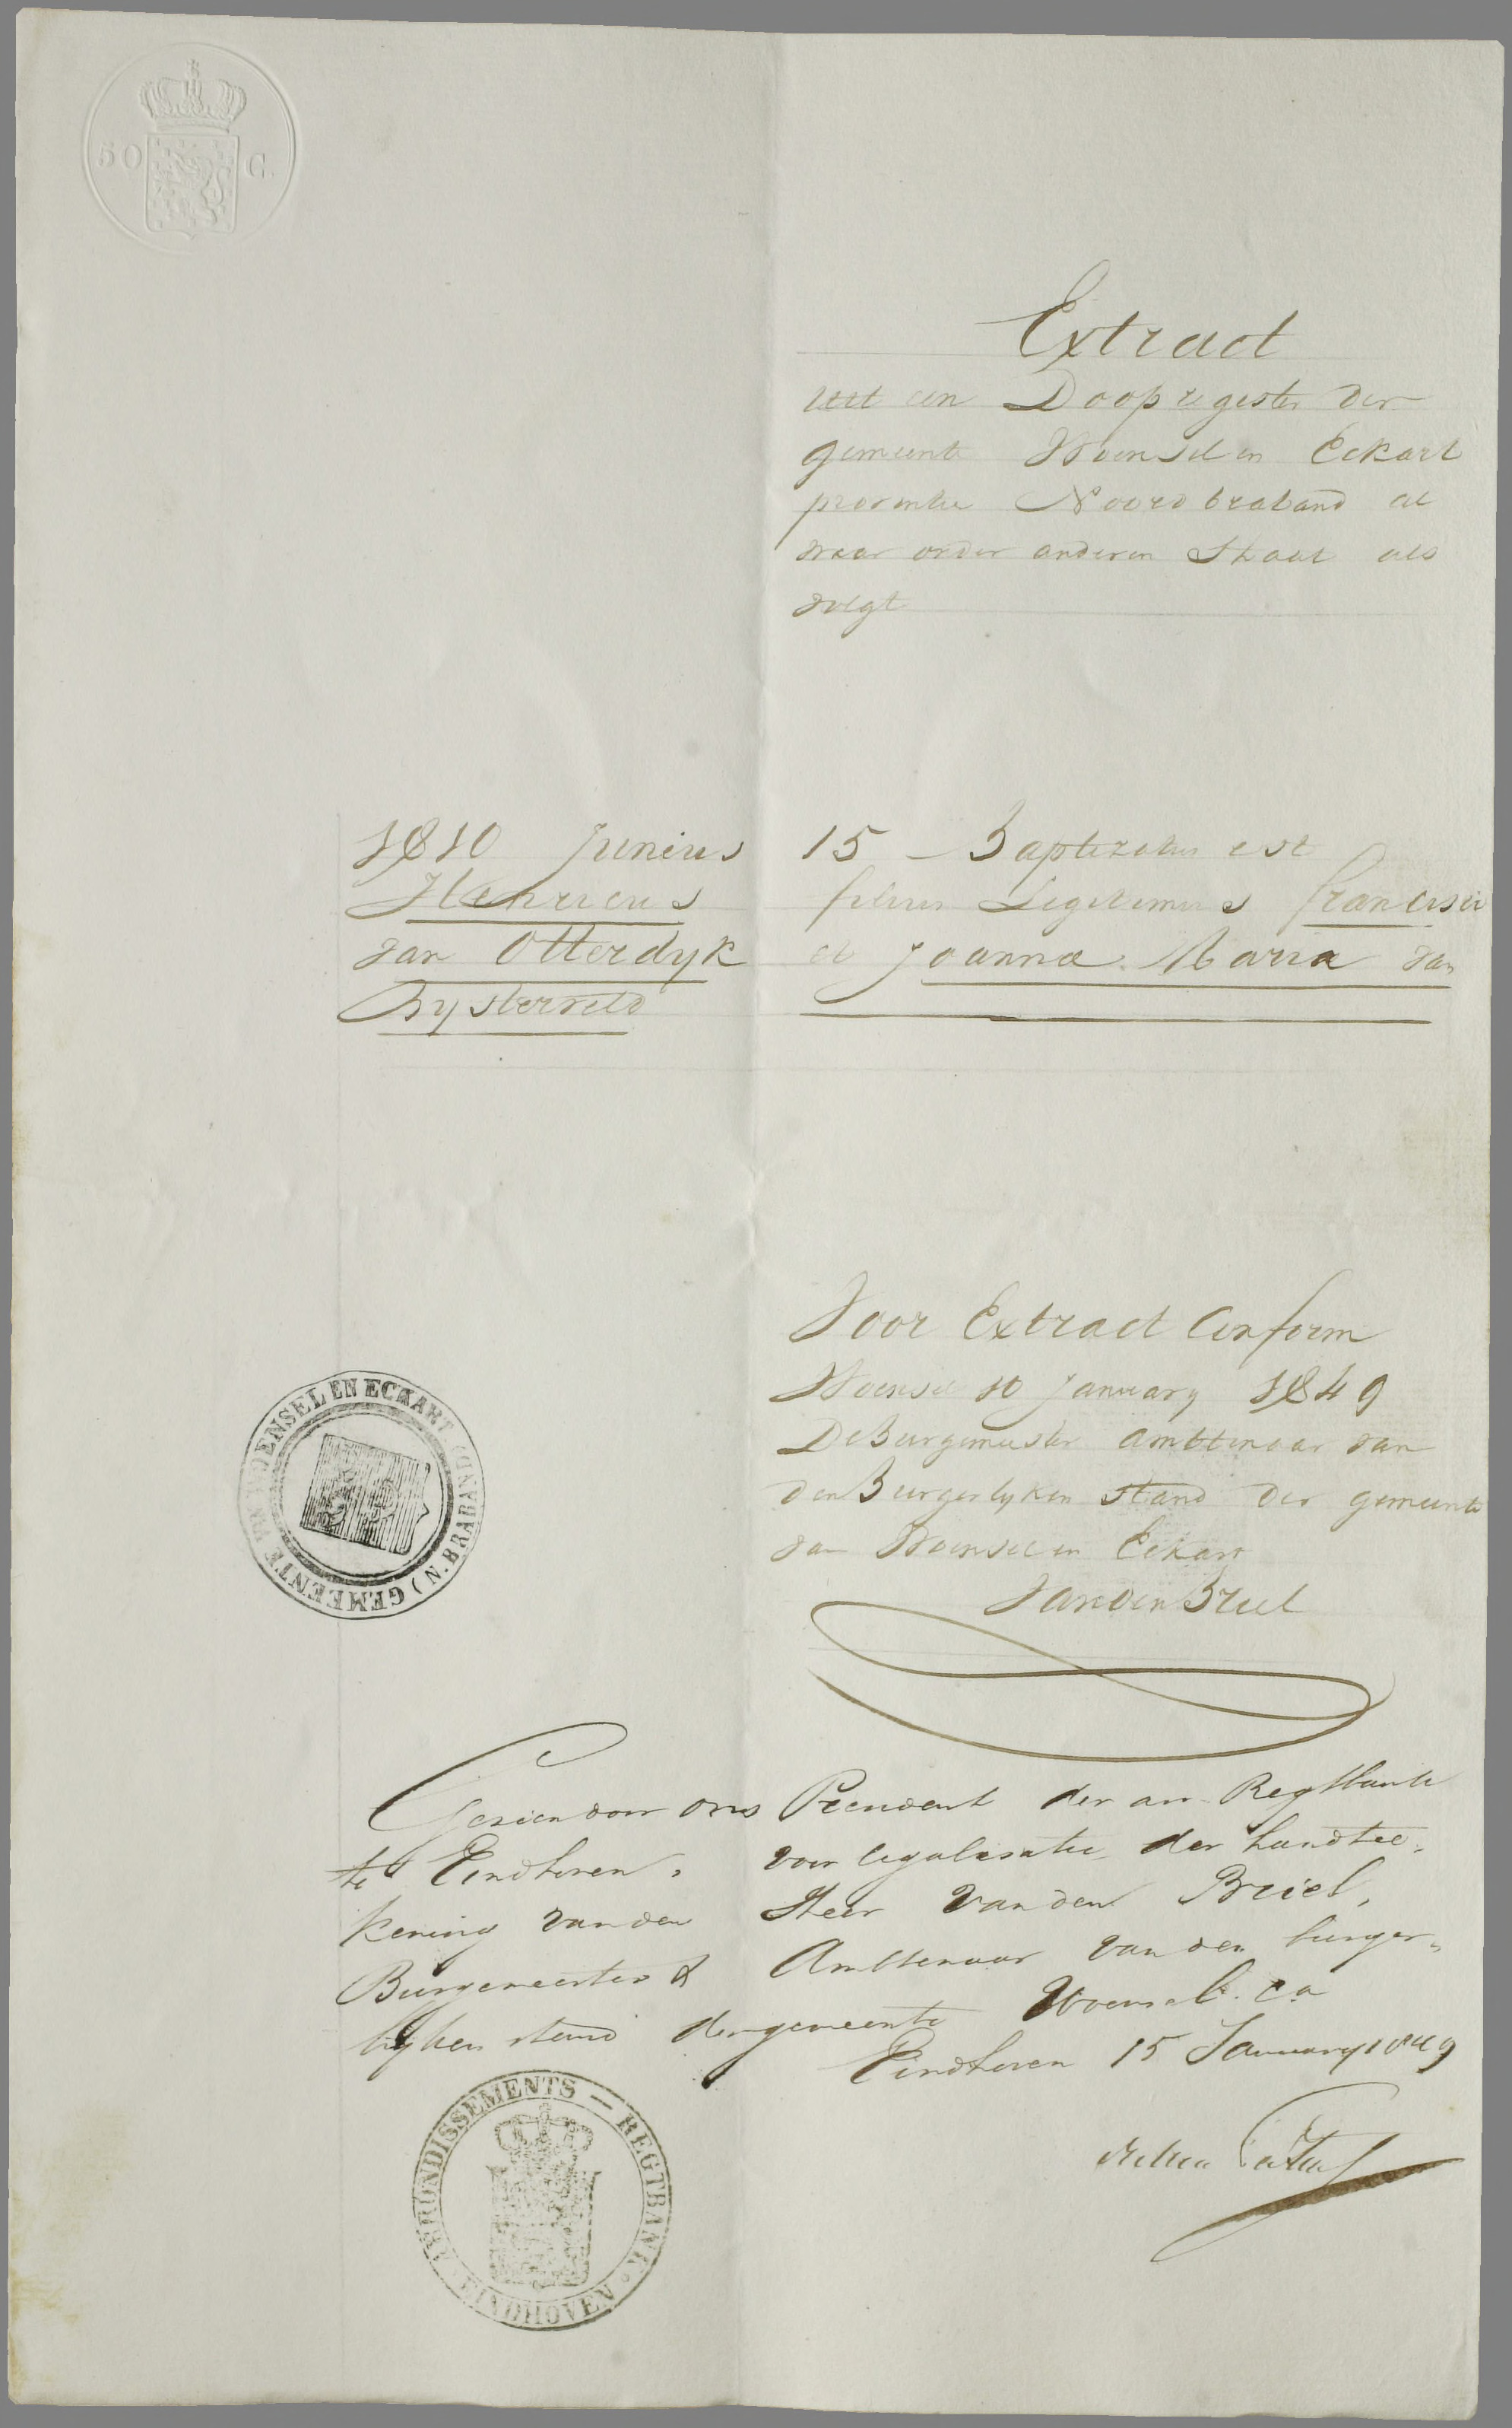 50 C.
Extract
uit een Doopregester der
gemeente Woensel en Eckart
provintie Noordbraband al
waar onder anderen Staat als
volgt
1810 Junius 15 - Baptizatus est
Henricus filius Legitimus Francisci
van Otterdyk et Joanna Maria van
Bysterveld
Voor Extract Conform
Woensel 10 January 1849
De Burgemeester Ambtenaar van
den Burgerlyken Stand der gemeente
van Woensel en Eckart
Van den Briel
GEMEENTE VAN WOENSEL EN ECKART (N. BRABAND)
Gezien door ons President der arr. Regtbank
te Eindhoven, voor legalisatie der handtee-
kening van den Heer van den Briel,
Burgemeester & Ambtenaar van den burger-
lyken stand der gemeente Woensel. ca
Eindhoven 15 January 1849
ARRONDISSEMENTS - REGTBANK EINDHOVEN